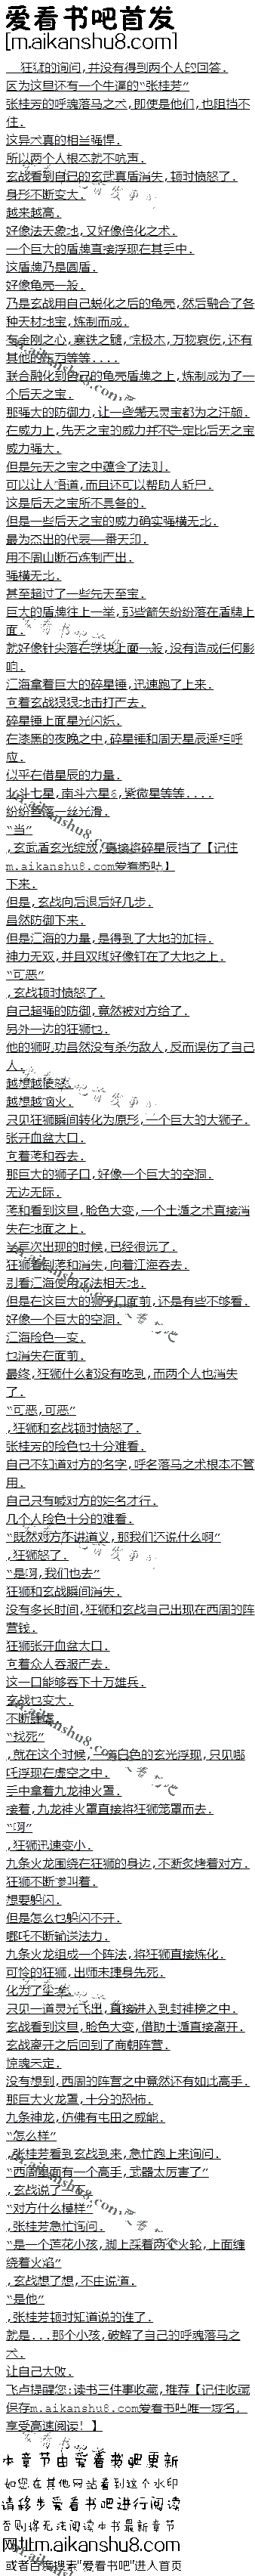 爱看书吧首发
[m.aikanshu8.com]
狂狮的询问,并没有得到两个人的回答.
因为这里还有一个牛逼的“张桂芳”
张桂芳的呼魂落马之术,即使是他们,也阻挡不
住.
这异术真的相当强悍.
所以两个人根本就不吭声.
玄战看到自己的玄武真盾消失,顿时愤怒了.
身形不断变大.
越来越高.
好像法天象地,又好像倍化之术.
一个巨大的盾牌直接浮现在其手中.
这盾牌乃是圆盾.
好像龟壳一般.
乃是玄战用自己蜕化之后的龟壳,然后融合了各
种天材地宝,炼制而成.
有金刚之心,寒铁之髓,棕极木,万物哀伤,还有
其他的五万等等....
联合融化到自己的龟壳盾牌之上,炼制成为了一
个后天之宝.
那强大的防御力,让一些先天灵宝都为之汗颜.
在威力上,先天之宝的威力并不一定比后天之宝
威力强大.
但是先天之宝之中蕴含了法则.
可以让人悟道,而且还可以帮助人斩尸.
这是后天之宝所不具备的.
但是一些后天之宝的威力确实强横无比.
最为杰出的代表——番天印.
用不周山断石炼制产出.
强横无比.
甚至超过了一些先天至宝.
巨大的盾牌往上一举,那些箭矢纷纷落在盾牌上
面.
就好像针尖落在铁块上面一般,没有造成任何影
响.
江海拿着巨大的碎星锤,迅速跑了上来.
向着玄战狠狠地击打产去.
碎星锤上面星光闪烁.
在漆黑的夜晚之中,碎星锤和周天星辰遥相呼
应.
似乎在借星辰的力量.
北斗七星,南斗六星6,紫微星等等....
纷纷坠落一丝光滑.
“当”
,玄武盾玄光绽放,直接将碎星辰挡了【记住
m.aikanshu8.com爱看书吧】
下来.
但是,玄战向后退后好几步.
昌然防御下来.
但是江海的力量,是得到了大地的加持.
神力无双,并且双脚好像钉在了大地之上.
“可恶”
,玄战顿时愤怒了.
自己超强的防御,竟然被对方给了.
另外一边的狂狮也.
他的狮吼功昌然没有杀伤敌人,反而误伤了自己
人.
越想越愤怒.
越想越恼火.
只见狂狮瞬间转化为原形,一个巨大的大狮子.
张开血盆大口.
向着薄和吞去.
那巨大的狮子口,好像一个巨大的空洞.
无边无际.
薄和看到这里,脸色大变,一个土遁之术直接消
失在地面之上.
当再次出现的时候,已经很远了.
狂狮看到薄和消失,向着江海吞去.
别看江海使用了法相天地.
但是在这巨大的狮子口面前,还是有些不够看.
好像一个巨大的空洞.
江海脸色一变.
也消失在面前.
最终,狂狮什么都没有吃到,而两个人也消失
了.
“可恶,可恶”
,狂狮和玄战顿时愤怒了.
张桂芳的脸色也十分难看.
自己不知道对方的名字,呼名落马之术根本不管
用.
自己只有喊对方的姓名才行.
几个人脸色十分的难看.
“既然对方不讲道义,那我们还说什么啊”
,狂狮怒了.
“是啊,我们也去”
狂狮和玄战瞬间消失.
没有多长时间,狂狮和玄战自己出现在西周的阵
营钱.
狂狮张开血盆大口.
向着众人吞服产去.
这一口能够吞下十万雄兵.
玄战也变大.
“找死”
,就在这个时候,一道白色的玄光浮现,只见哪
吒浮现在虚空之中.
手中拿着九龙神火罩.
接着,九龙神火罩直接将狂狮笼罩而去.
“啊”
,狂狮迅速变小.
九条火龙围绕在狂狮的身边,不断炙烤着对方.
狂狮不断惨叫着.
想要躲闪.
但是怎么也躲闪不开.
哪吒不断输送法力.
九条火龙组成一个阵法,将狂狮直接炼化.
可怜的狂狮,出师未捷身先死.
化为了尘埃.
只见一道灵光飞出,直接进入到封神榜之中.
玄战看到这里,脸色大变,借助土遁直接离开.
玄战离开之后回到了商朝阵营.
惊魂未定.
没有想到,西周的阵营之中竟然还有如此高手.
那巨大火龙罩,十分的恐怖.
九条神龙,仿佛有屯田之威能.
“怎么样”
,张桂芳看到玄战到来,急忙跑上来询问.
“西周里面有一个高手,武器太厉害了”
,玄战说了一下.
“对方什么模样”
,张桂芳急忙询问.
“是一个莲花小孩,脚上踩着两个火轮,上面缠
绕着火焰”
,玄战想了想,不庄说道.
“是他”
,张桂芳顿时知道说的谁了.
就是...那个小孩,破解了自己的呼魂落马之
术.
让自己大败.
飞卢提醒您:读书三件事收藏,推荐【记住收藏
保存m.aikanshu8.com爱看书吧唯一域名,
享受高速阅读!】
本章节由爱看书吧更新
如您在其他网站看到这个水印
请移步爱看书吧进行阅读
否则将无法阅读本书最新章节
网址:m.aikanshu8.com
或者百度搜索“爱看书吧”进入首页